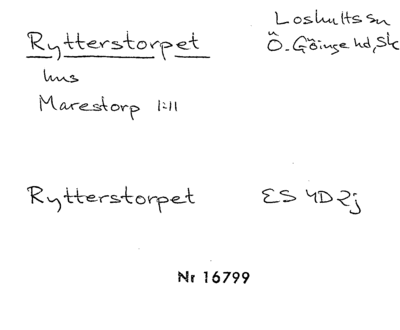 Rytterstorpet
Loshultssn
Ö. Göinge hd, Sk
hus
Marestorp 1:11
Rytterstorpet
ES 4D2j
Nr 16799